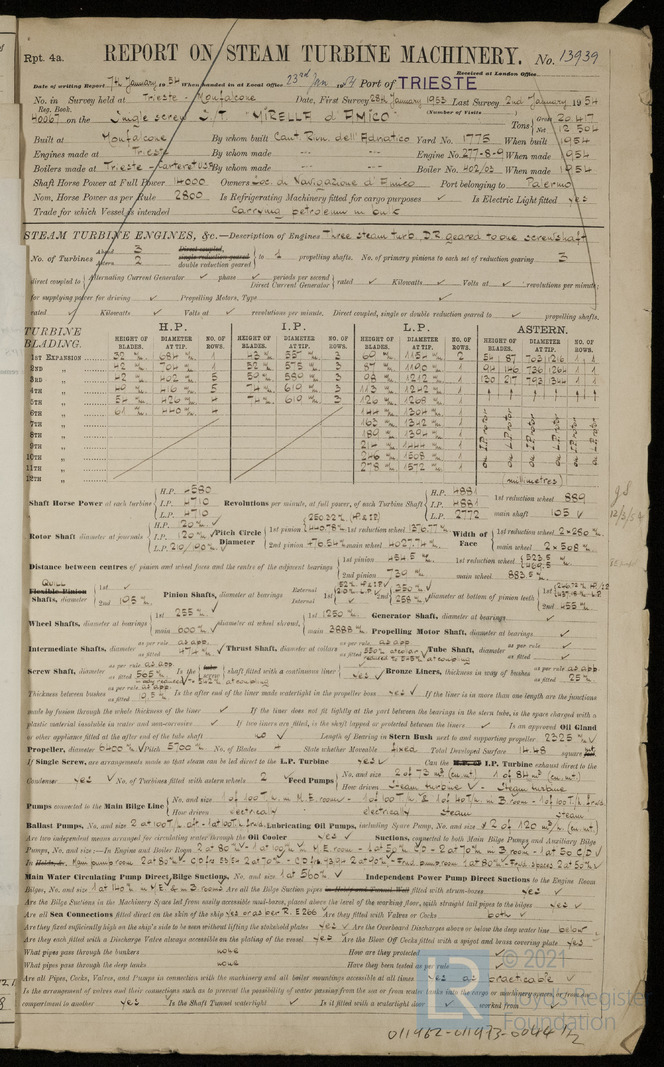 Rpt. 4a. REPORT ON STEAM TURBINE MACHINERY. No. 13939
Received at London Office
Date of writing Report 7th January 1954 When handed in at Local Office 23rd Jan 1954 Port of TRIESTE
No. in Survey held at Trieste - Monfalcone Date, First Survey 28th January 1953 Last Survey 2nd January 1954
Reg. Book. (Number of Visits )
40067 on the Single screw S/T "MIRELLA d'AMICO" Tons Gross 20417 Net 12504
Built at Monfalcone By whom built Cant. Riun. dell'Adriatico Yard No. 1775 When built 1954
Engines made at Trieste By whom made Engine No. 277-8-9 When made 1954
Boilers made at Trieste By whom made Boiler No. 402/03 When made 1954
Shaft Horse Power at Full Power 14000 Owners Soc. di Navigazione d'Amico Port belonging to Palermo
Nom. Horse Power as per Rule 2800 Is Refrigerating Machinery fitted for cargo purposes ✓ Is Electric Light fitted yes
Trade for which Vessel is intended Carrying petroleum in bulk
STEAM TURBINE ENGINES, &c.—Description of Engines Three steam turb. D.R. geared to one screwshaft
No. of Turbines Ahead 3 Astern 2 Direct coupled, single reduction geared double reduction geared to 1 propelling shafts. No. of primary pinions to each set of reduction gearing 3
direct coupled to Alternating Current Generator phase periods per second Direct Current Generator rated Kilowatts Volts at revolutions per minute;
for supplying power for driving Propelling Motors, Type
rated Kilowatts Volts at revolutions per minute. Direct coupled, single or double reduction geared to propelling shafts.
TURBINE BLADING. H.P. I.P. L.P. ASTERN.
HEIGHT OF BLADES. DIAMETER AT TIP. NO. OF ROWS. HEIGHT OF BLADES. DIAMETER AT TIP. NO. OF ROWS. HEIGHT OF BLADES. DIAMETER AT TIP. NO. OF ROWS. HEIGHT OF BLADES. DIAMETER AT TIP. NO. OF ROWS.
1ST EXPANSION 32 684 1 43 557 3 69 1154 2 54 87 703 1216 1 1
2ND " 42 704 1 52 575 3 87 1190 1 94 146 736 1264 1 1
3RD " 42 402 5 59 589 3 98 1212 1 130 217 793 1344 1 1
4TH " 49 416 5 74 619 3 113 1242 1
5TH " 54 426 4 74 619 3 126 1268 1
6TH " 61 440 4 144 1304 1
7TH " 163 1342 1
8TH " 189 1394 1
9TH " 214 1444 1
10TH " 246 1508 1
11TH " 278 1572 1
12TH " (millimetres)
Shaft Horse Power at each turbine H.P. 4580 I.P. 4710 L.P. 4710 Revolutions per minute, at full power, of each Turbine Shaft H.P. 4881 I.P. 4881 L.P. 2772 1st reduction wheel 889 main shaft 105
Rotor Shaft diameter at journals H.P. 120 I.P. 120 L.P. 210/190 Pitch Circle Diameter 1st pinion 1st reduction wheel 1376.77 2nd pinion 476.54 main wheel 4027.74 Width of Face 1st reduction wheel 2x280 main wheel 2x508
Distance between centres of pinion and wheel faces and the centre of the adjacent bearings 1st pinion 454.5 2nd pinion 730 1st reduction wheel main wheel 883.5
QUILL
Flexible Pinion Shafts, diameter 1st ✓ 2nd 195 Pinion Shafts, diameter at bearings External 1st Internal 1st 2nd 250 258 diameter at bottom of pinion teeth 1st 2nd 455
Wheel Shafts, diameter at bearings 1st 255 main 600 diameter at wheel shroud, 1st 1250 main 3888 Generator Shaft, diameter at bearings Propelling Motor Shaft, diameter at bearings
Intermediate Shafts, diameter as per rule as app. as fitted 474 Thrust Shaft, diameter at collars as per rule as app. as fitted 550 Tube Shaft, diameter as per rule as fitted
Screw Shaft, diameter as per rule as app. as fitted 565 Is the tube screw shaft fitted with a continuous liner yes Bronze Liners, thickness in way of bushes as per rule as app. as fitted 25
Thickness between bushes as per rule as app. as fitted Is the after end of the liner made watertight in the propeller boss yes If the liner is in more than one length are the junctions
made by fusion through the whole thickness of the liner ✓ If the liner does not fit tightly at the part between the bearings in the stern tube, is the space charged with a
plastic material insoluble in water and non-corrosive ✓ If two liners are fitted, is the shaft lapped or protected between the liners ✓ Is an approved Oil Gland
or other appliance fitted at the after end of the tube shaft no Length of Bearing in Stern Bush next to and supporting propeller 2325
Propeller, diameter 6400 Pitch 5700 No. of Blades 4 State whether Moveable fixed Total Developed Surface 14.48 square
If Single Screw, are arrangements made so that steam can be led direct to the L.P. Turbine yes Can the I.P. Turbine exhaust direct to the
Condenser yes No. of Turbines fitted with astern wheels 2 Feed Pumps No. and size 2 of 73 m³ (cu.mt.) 1 of 84 m³ (cu.mt.)
How driven Steam turbine - Steam turbine
Pumps connected to the Main Bilge Line No. and size 1 of 100 T/h in M.E. room - 1 of 100 T/h & 1 of 40 T/h in B. room - 1 of 100 T/h fwd.
How driven electrically electrically Steam Steam
Ballast Pumps, No. and size 2 at 100 T/h aft - 1 at 100 T/h fwd. Lubricating Oil Pumps, including Spare Pump, No. and size 2 of 120 m³/h (cu.mt.)
Are two independent means arranged for circulating water through the Oil Cooler yes Suctions, connected to both Main Bilge Pumps and Auxiliary Bilge
Pumps, No. and size:—In Engine and Boiler Room
Main Water Circulating Pump Direct Bilge Suctions, No. and size 1 at 560 Independent Power Pump Direct Suctions to the Engine Room
Bilges, No. and size Are all the Bilge Suction pipes fitted with strum-boxes yes
Are the Bilge Suctions in the Machinery Space led from easily accessible mud-boxes, placed above the level of the working floor, with straight tail pipes to the bilges yes
Are all Sea Connections fitted direct on the skin of the ship yes or as per R.E 266 Are they fitted with Valves or Cocks both
Are they fixed sufficiently high on the ship's side to be seen without lifting the stokehold plates yes Are the Overboard Discharges above or below the deep water line below
Are they each fitted with a Discharge Valve always accessible on the plating of the vessel yes Are the Blow Off Cocks fitted with a spigot and brass covering plate yes
What pipes pass through the bunkers none How are they protected
What pipes pass through the deep tanks none Have they been tested as per rule
Are all Pipes, Cocks, Valves, and Pumps in connection with the machinery and all boiler mountings accessible at all times yes as practicable
Is the arrangement of valves and their connections such as to prevent the possibility of water passing from the sea or from water tanks into the cargo or machinery spaces, or from one
compartment to another yes Is the Shaft Tunnel watertight ✓ Is it fitted with a watertight door worked from
© 2021
Lloyd's Register
Foundation
LR
011962-011973-0044 1/2